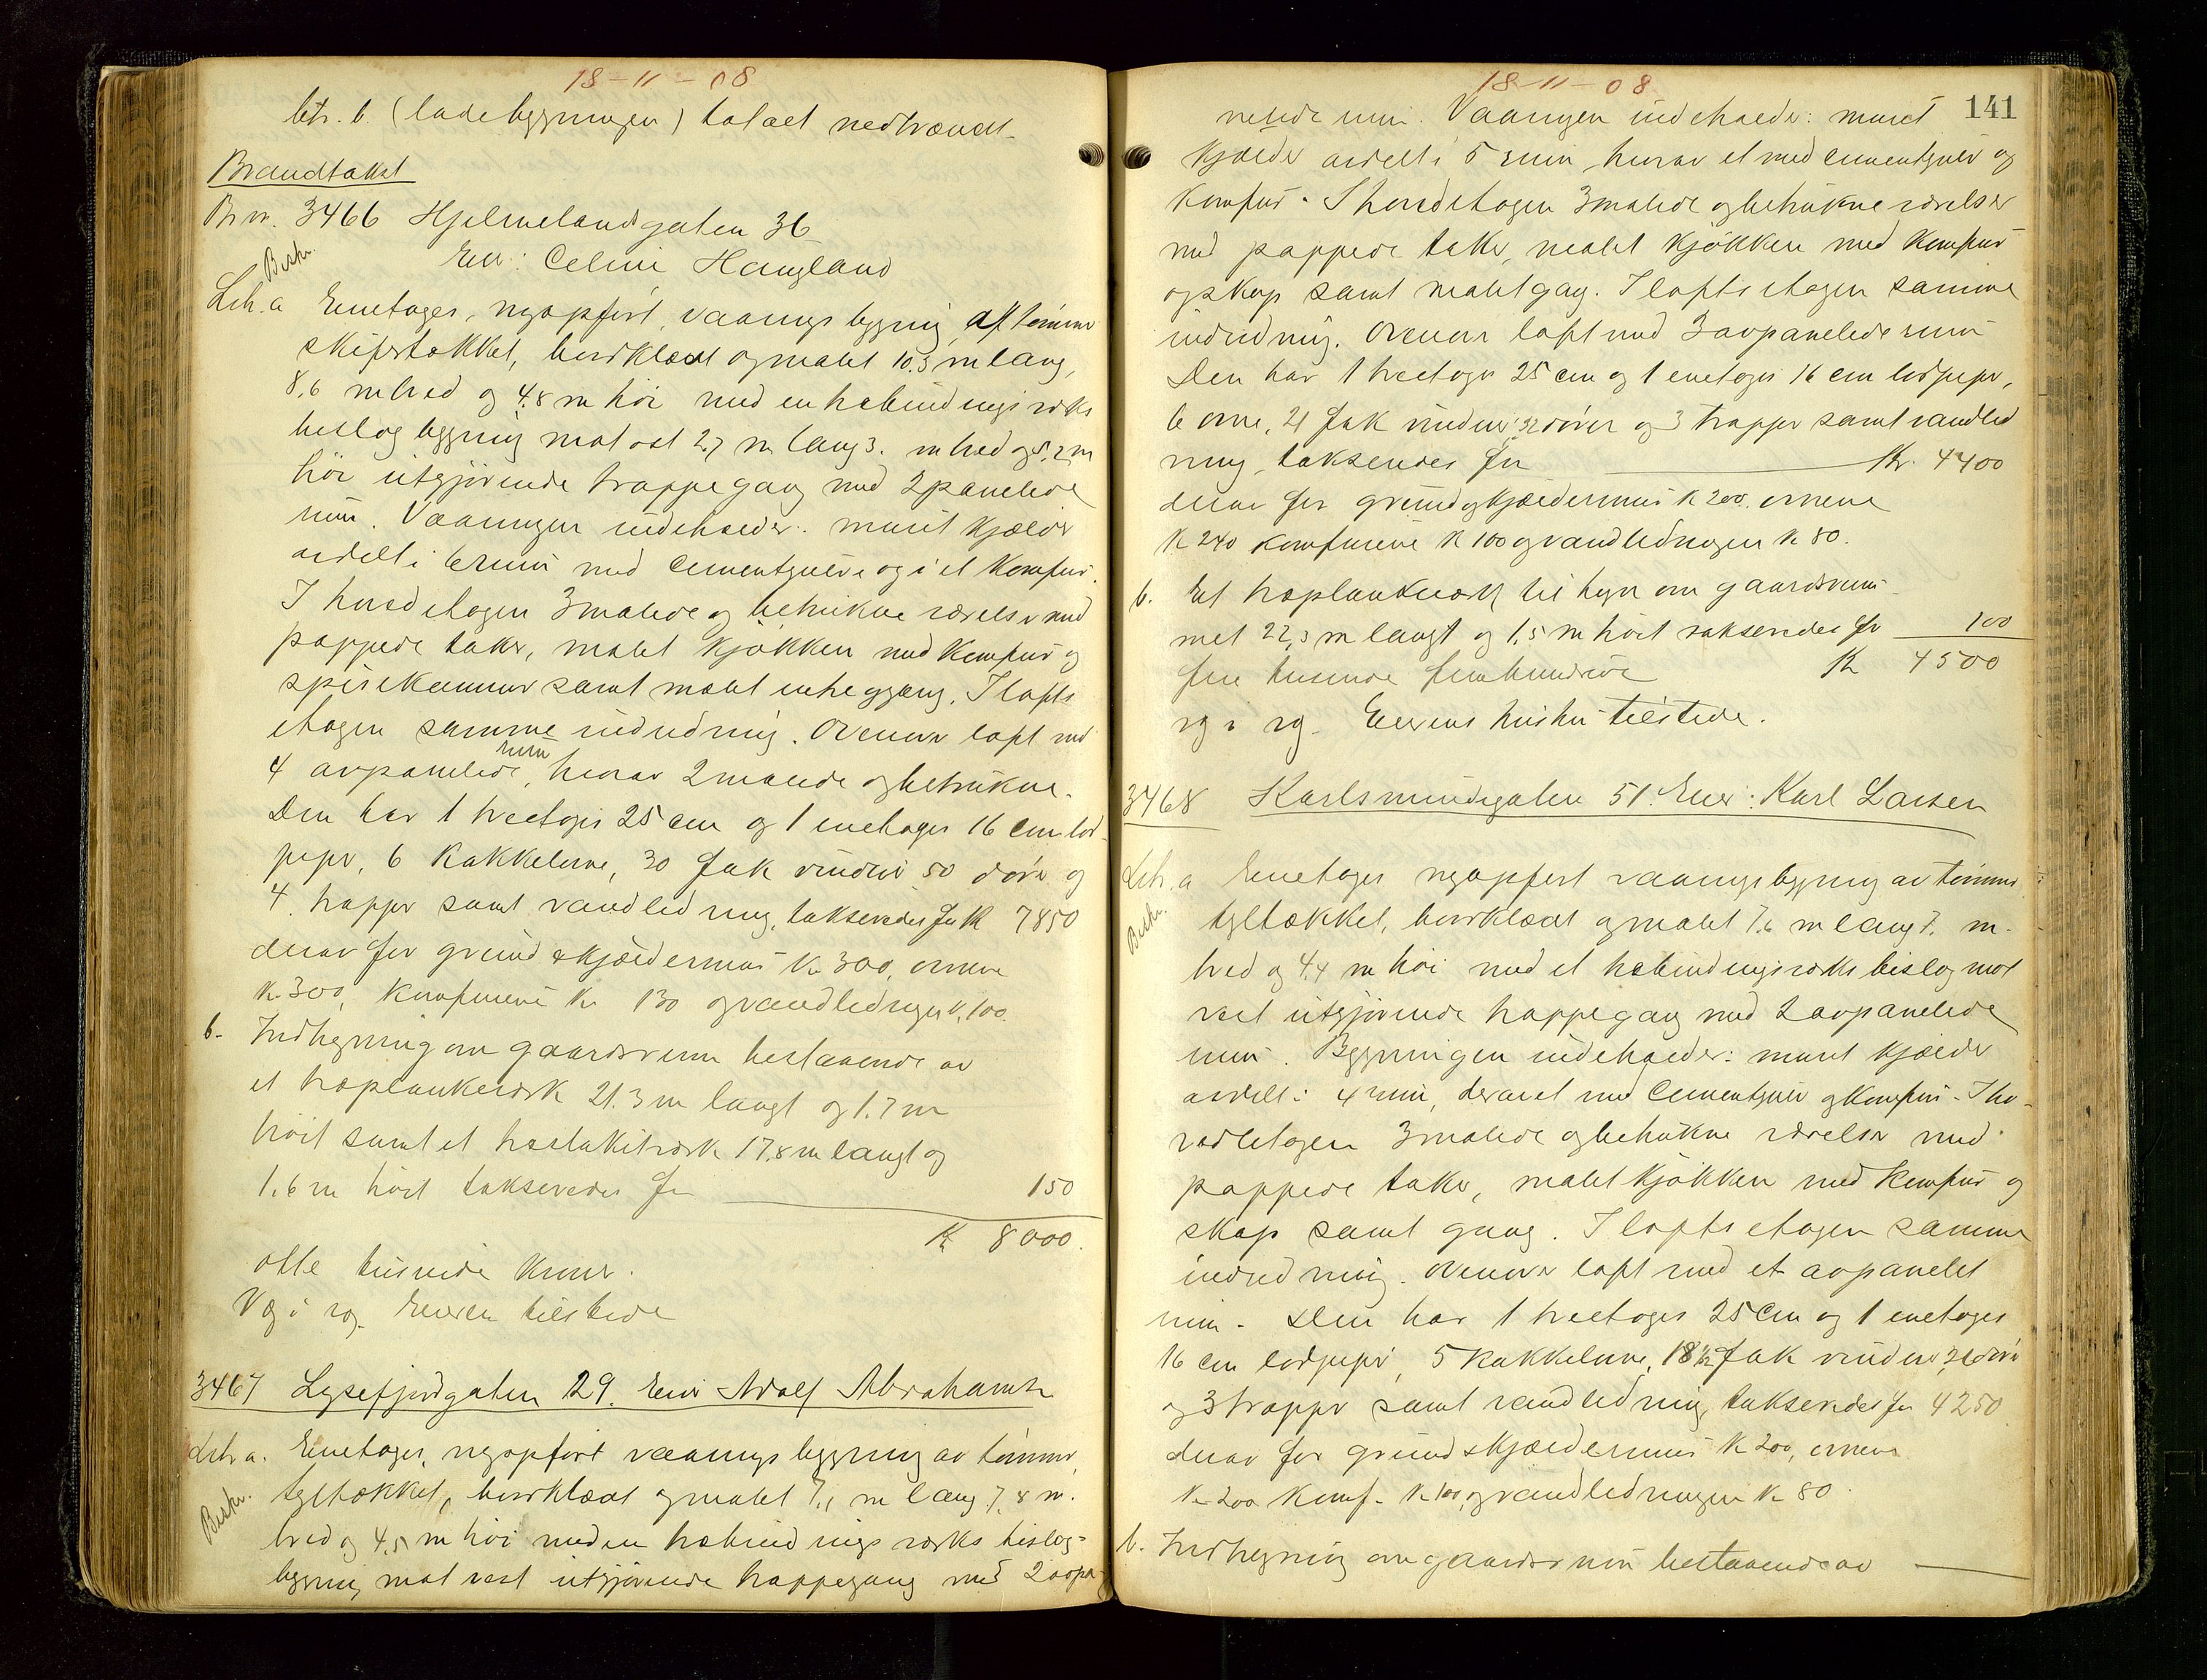 18-11-08
litr. b. (ladebygningen) totalt nedbrændt
Brandtakst
Br.nr. 3466 Hjelmelandsgaten 36
Beskr.
Eier: Celine Haugland
Litr. a Enetages, nyopført, vaaningsbygning af tømmer
skifertækket, bordklædt og malet 10.3 m lang,
8,6 m bred og 4.8 m høi med en træbindingsværks
beslagbygning mot ost 2,7 m lang 3. m bred og 5,2 m
høi utgjørende trappegang med 2 panelede
rum. Vaaningen indeholder: muret kjælder
avdelt i 6 rum med cementgulve og i et komfur.
I hovedetagen 3 malede og betrukne værelser med
pappede taker, malet kjøkken med komfur og
spisekammer samt malet indregang. I lofts
etagen samme indredning. Ovenover loft med
4 avpanelede rum, hvorav 2 malede og betrukne.
Den har 1 treetages 25 cm og 1 enetages 16 cm lod-
piper, 6 kakkelovne, 30 fak vinduer 50 dører og
4 trapper samt vandledning, takseredes for Kr 7850
derav for grund & kjældermur Kr 300, ovnene
Kr 300, komfurene Kr 130 og vandledningen K. 100.
b. Indhegning om gaardsrum bestaaende av
et træplankeværk 21.3 m langt og 1.7 m
høit samt et træstakitværk 17.8 m langt og
1.6 m høit takseredes for 150
Kr 8000.
otte tusinde kroner.
V og i vg. Eieren tilstede
3467 Lysefjordgaten 29. Eier Adolf Abrahamsen
Litr. a. Enetages, nyopført vaaningsbygning av tømmer,
Beskr.
tegltækket, bordklædt og malet 7,1 m lang 7,8 m.
bred og 4,5 m høi med en træbindingsværks bislag-
bygning mot vest utgjørende trappegang med 2 avpa-
18-11-08
141
nelede rum. Vaaningen indeholder: muret
kjælder avdelt i 5 rum, hvorav et med cementgulv og
komfur. I hovedetagen 3 malede og betrukne værelser
med pappede taker, malet kjøkken med komfur
og skap samt malet gang. I loftsetagen samme
indredning. Ovenover loft med 3 avpanelede rum
Den har 1 treetages 25 cm og 1 enetages 16 cm lodpiper,
6 ovne, 21 fak vinduer, 32 dører og 3 trapper samt vandled
ning, takseredes for Kr. 4400
derav for grund og kjældermur K 200. ovnene
K 240 komfurene K 100 og vandledningen K 80.
b. Et træplankeværk til hegn om gaardsrum-
met 22,3 m langt og 1,5 m høit takseredes for 100
fire tusinde femhundrede Kr 4500
vg i vg. Eierens hustru tilstede.
3468 Karlsmindegaten 51. Eier: Karl Larsen
Litr. a Enetages nyopført vaaningsbygning av tømmer
Beskr.
tegltækket, bordklædt og malet 7.6 m lang 7. m.
bred og 4.4 m høi med et træbindingsværks bislag mot
vest utgjørende trappegang med 2 avpanelede
rum. Bygningen indeholder: muret kjælder
avdelt i 4 rum, derav et med cementgulv og komfur. I ho-
vedetagen 3 malede og betrukne værelser med
pappede taker, malet kjøkken med komfur og
skap samt gang. I loftsetagen samme
indredning. Ovenover loft med et avpanelet
rum. Den har 1 treetages 25 cm og 1 enetages
16 cm lodpiper, 5 kakkelovne, 18 1/2 fak vinduer, dører
og 3 trapper samt vandledning takseredes for 4250
derav for grund & kjældermur K 200, ovnene
K 200 komf. K 100, og vandledningen K 80.
b. Indhegning om gaardsrum bestaaende av